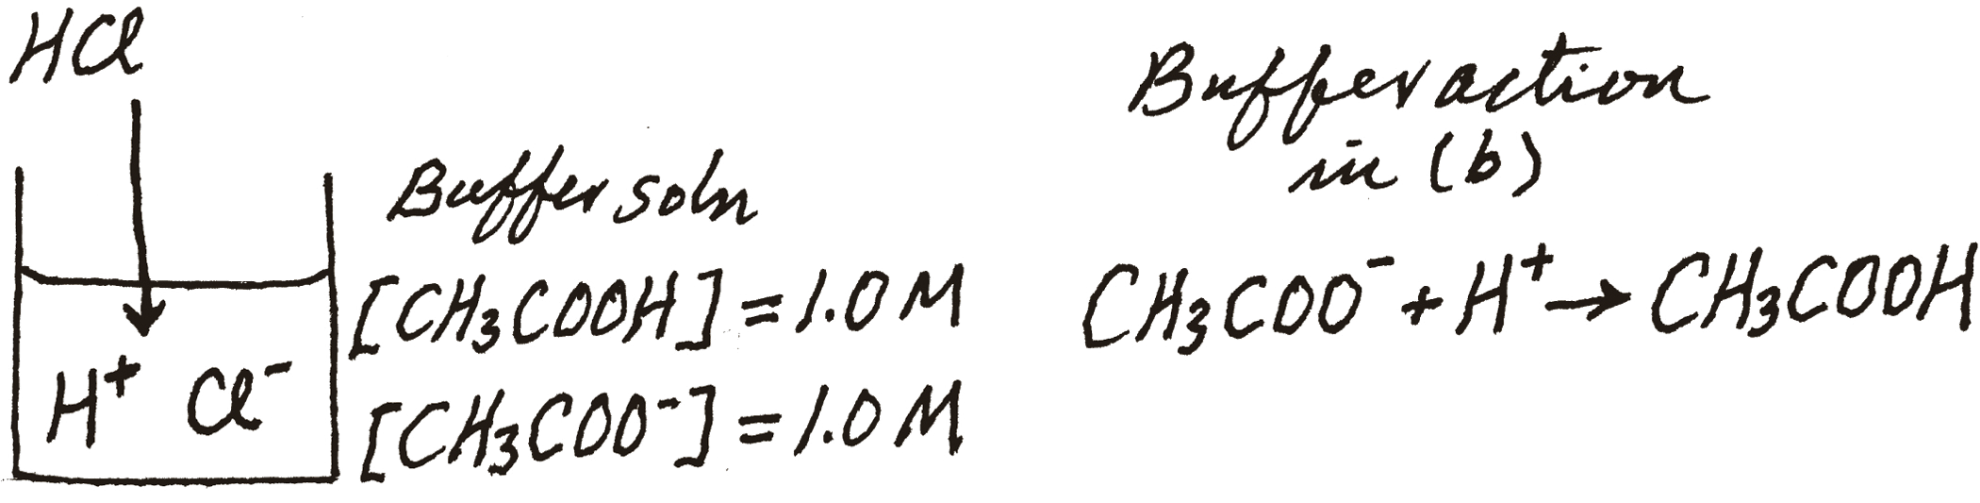 HCl
H⁺ Cl⁻
Buffer soln
[CH₃COOH] = 1.0 M
[CH₃COO⁻] = 1.0 M
Buffer action
in (b)
CH₃COO⁻ + H⁺ → CH₃COOH